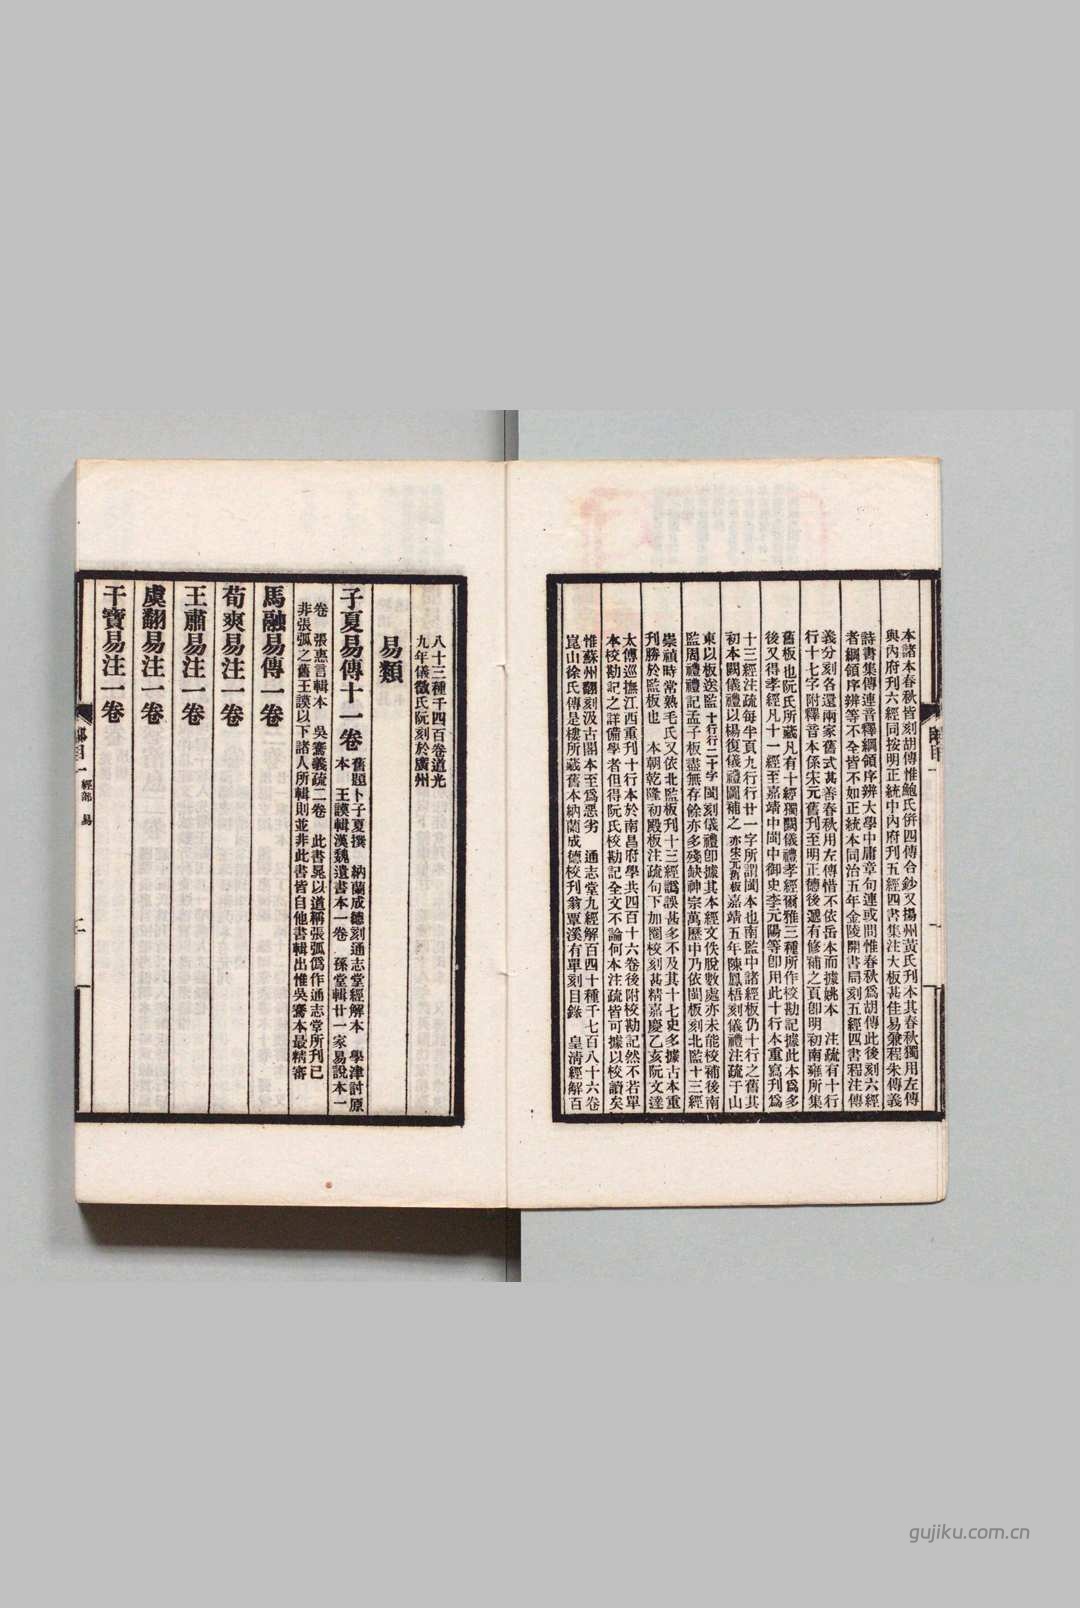 本諸本春秋皆刻胡傳惟鮑氏併四傳合鈔又揚州黃氏刊本其春秋獨用左傳
與內府刊六經同按明正統中內府刊五經四書集注大板甚佳易兼程朱傳義
詩書集傳連音釋綱領序辨大學中庸章句連或問惟春秋爲胡傳此後刻六經
者綱領序辨等不全皆不如正統本同治五年金陵開書局刻五經四書程注傳
義分刻各還兩家舊式甚善春秋用左傳惜不依岳本而據姚本 注疏有十行
行十七字附釋音本係宋元舊刊至明正德後遞有修補之頁卽明初南雍所集
舊板也阮氏所藏凡有十經獨闕儀禮孝經爾雅三種所作校勘記據此本爲多
後又得孝經凡十一經至嘉靖中閩中御史李元陽等卽用此十行本重寫刊爲
十三經注疏每半頁九行行廿一字所謂閩本也南監中諸經板仍十行之舊其
初本闕儀禮以楊復儀禮圖補之亦宋元舊板嘉靖五年陳鳳梧刻儀禮注疏于山
東以板送監十行行二十字閩刻儀禮卽據其本經文佚脫數處亦未能校補後南
監周禮禮記孟子板盡無存餘亦多殘缺神宗萬歷中乃依閩板刻北監十三經
崇禎時常熟毛氏又依北監板刊十三經譌誤甚多不及其十七史多據古本重
刊勝於監板也 本朝乾隆初殿板注疏句下加圈校刻甚精嘉慶乙亥阮文達
太傅巡撫江西重刊十行本於南昌府學共四百十六卷後附校勘記然不若單
本校勘記之詳備學者但得阮氏校勘記全文不論何本注疏皆可據以校讀矣
惟蘇州翻刻汲古閣本至爲惡劣 通志堂九經解百四十種千七百八十六卷
崑山徐氏傳是樓所藏舊本納蘭成德校刊翁覃溪有單刻目錄 皇淸經解百
八十三種千四百卷道光
九年儀徵氏阮刻於廣州
易類
子夏易傳十一卷
舊題卜子夏撰 納蘭成德刻通志堂經解本 學津討原
本 王謨輯漢魏遺書本一卷 孫堂輯廿一家易說本一
卷 張惠言輯本 吳騫義疏二卷 此書晁以道稱張弧僞作通志堂所刊已
非張弧之舊王謨以下諸人所輯則並非此書皆自他書輯出惟吳騫本最精審
馬融易傳一卷
荀爽易注一卷
王肅易注一卷
虞翻易注一卷
干寶易注一卷
經部 易
gujiku.com.cn